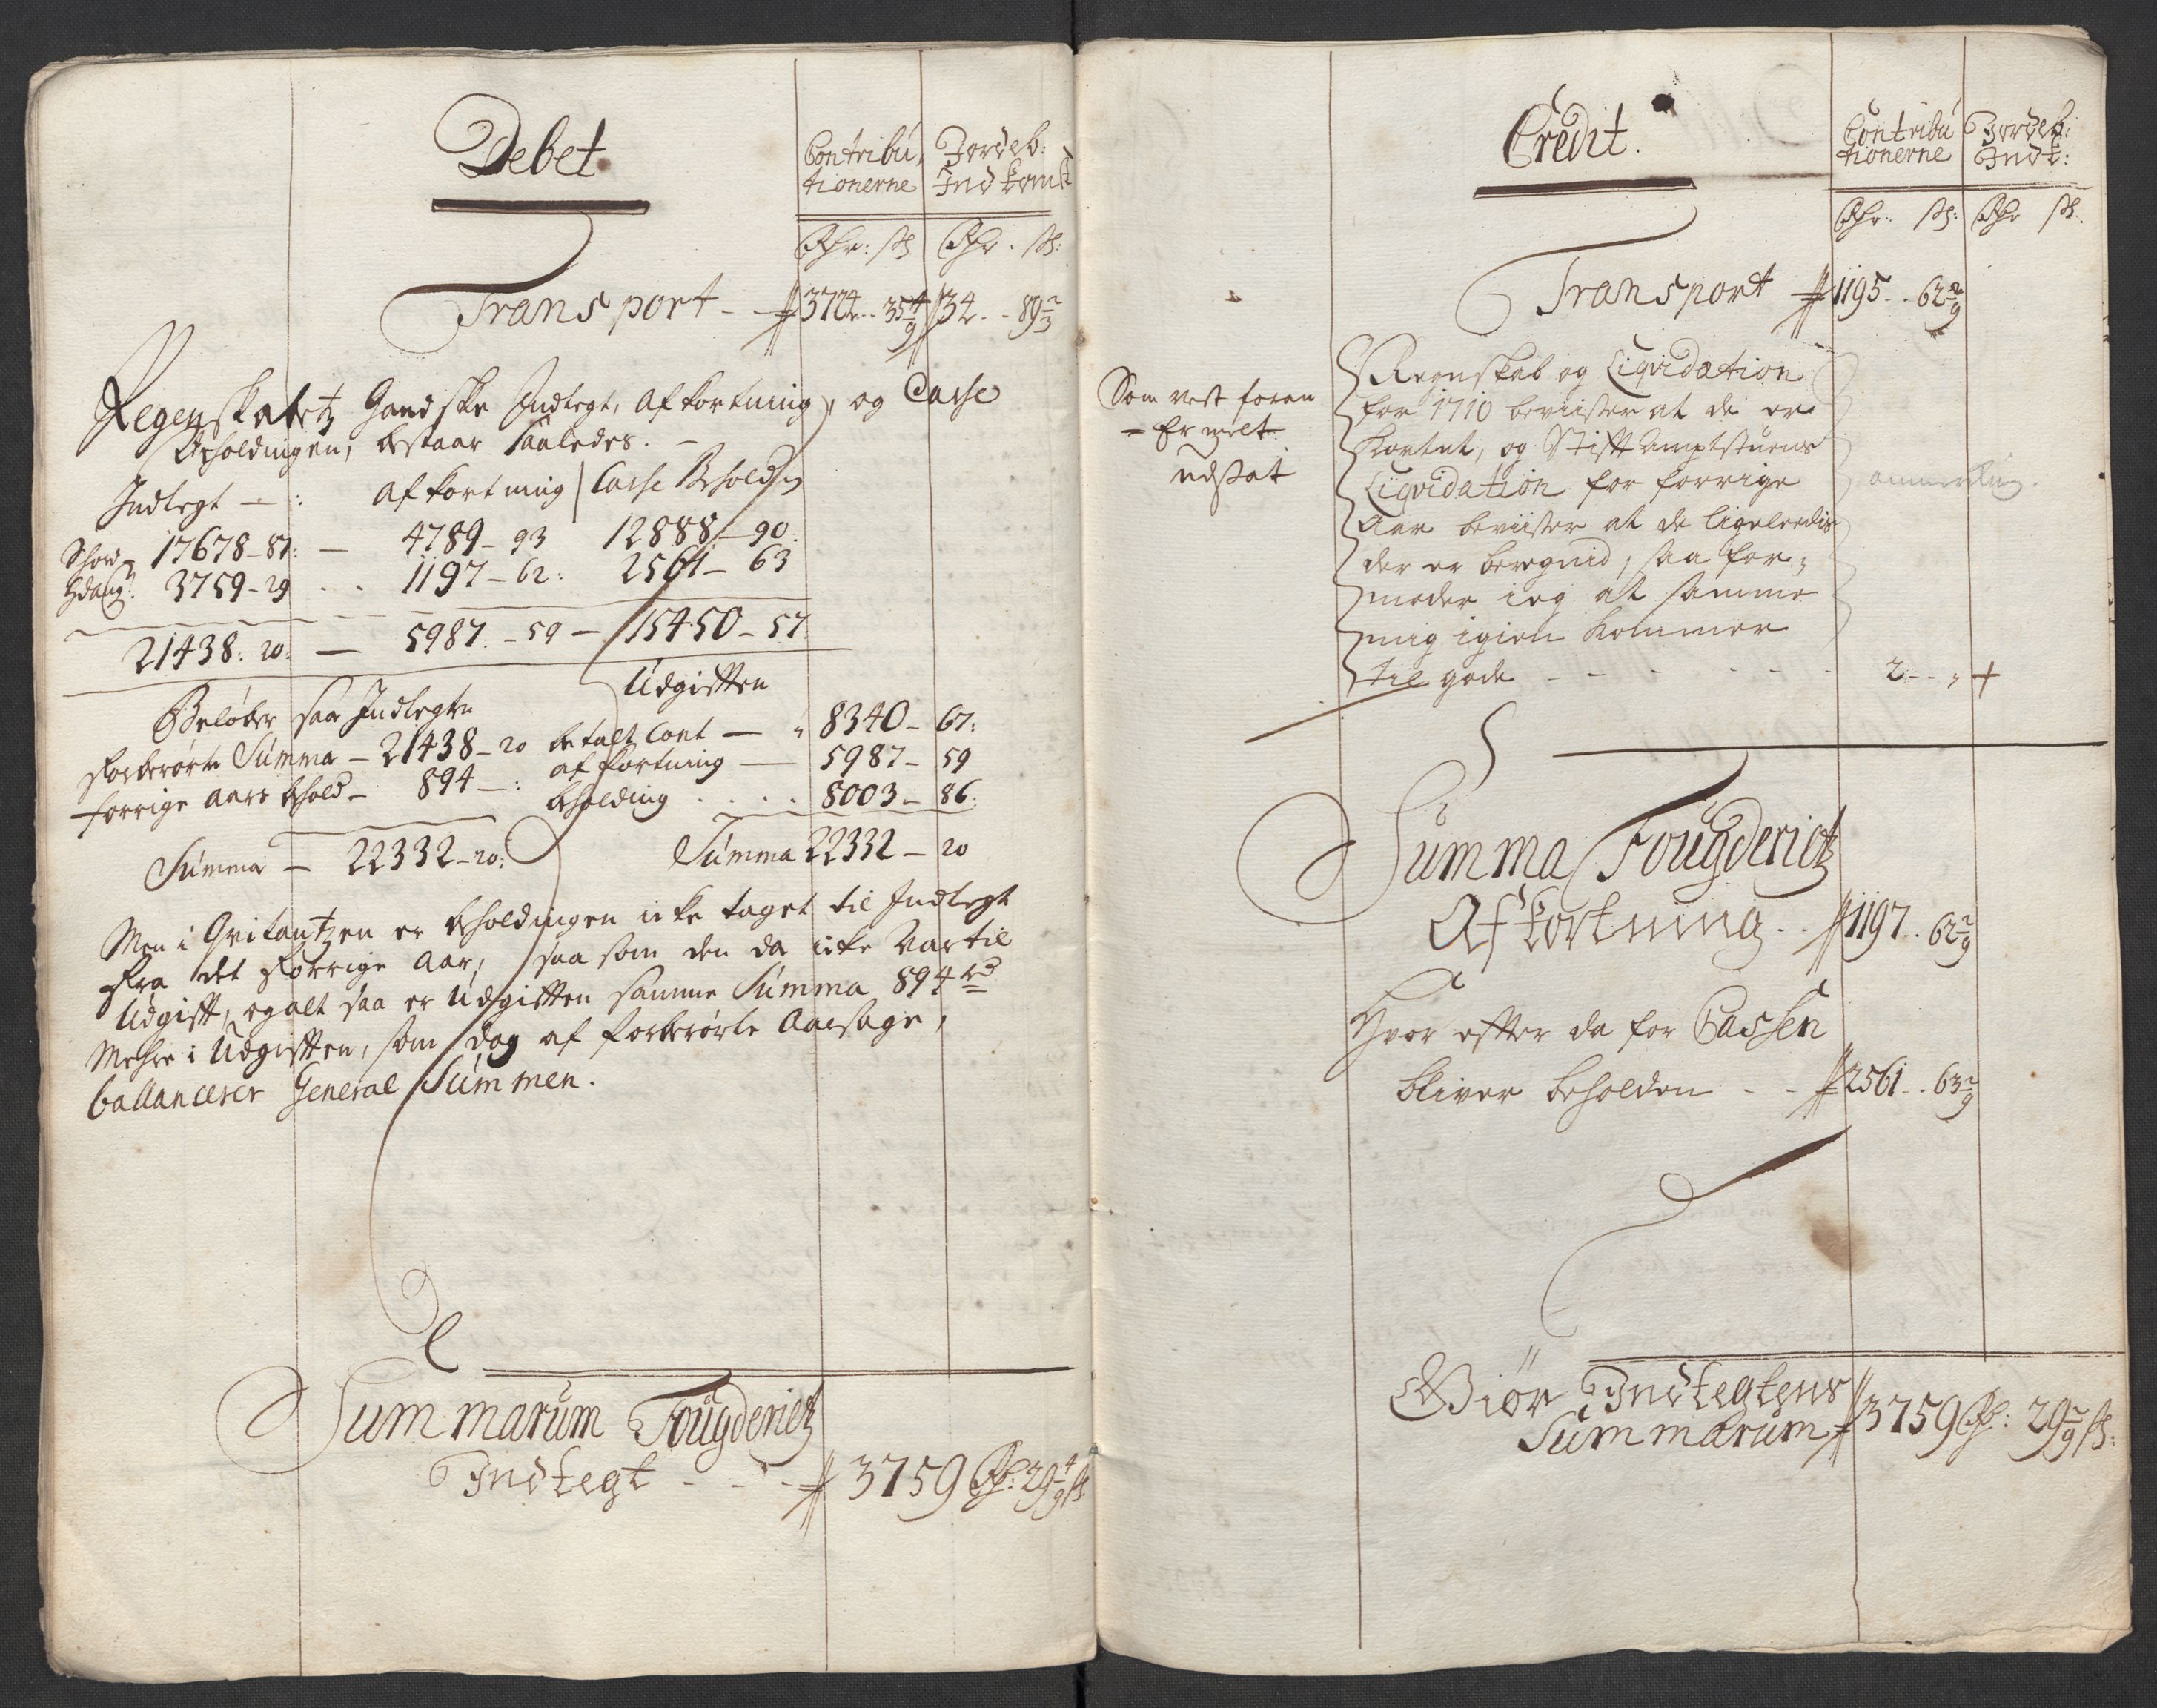 Debet
Contribu, Jordeb:
tionerne Indkomst
Rdr: sk Rdr. sk:
Transport - - 3724 - 35 4/9 34 - - 89 2/3
Regenskabetz Gandske Indtegt, afkortning, og Casse
Beholdingen, bestaar saaledes. -
Indtegt - : afkortning Casse Beholdn
17678 - 87: - 4789 - 93 12888 - 90:
3759 - 29 . . 1197 - 62: 2561 - 63
21438: 20: - 5987 - 59 - 15450 - 57:
Udgifften
Beløber saa Indtegten
forberørte Summa - 21438 - 20 betalt Cont - " 8340 - 67:
forrige aars behold - 894 - : afkortning - 5987 - 59
beholding . . . . 8003 - 86:
Summa - 22332 - 20: Summa 22332 - 20
Men i Qvitantzen er beholdingen icke taget til Indtegt
fra det forrige aar, saa som den da icke var til
Udgifft, og alt saa er Udgifften samme Summa 894 rd
Mehre i Udgifften, som dog af forberørte Aarsage,
ballancerer General Summen.
Summarum Fougderietz
Indtegt - - - 3759 Rd: 29 4/9 sk
Credit.
Contribu Jordeb:
tionerne Indk:
Rdr: sk: Rdr sk.
Transport 1195 - - 62 2/9
Som nest foran
- Ermelt
udstat
Regenskab og Liqvidation
for 1710 beviiser at de er
kortet, og Stifft Amptstuens
Liqvidation for forrige
Aar beviiser at de ligeleedis
der er beregnid, saa for,
moder ieg at samme
mig igien kommer
til gode - - - - - - 2 - - " +
Summa Fougderietz
Afkortning . . 1197 . 62 2/9
Hvor effter da for Cassen
bliver beholden - - 2561 - - 63 2/9
Giør Indtegtens
Summarum 3759 Rd: 29 2/9 sk: